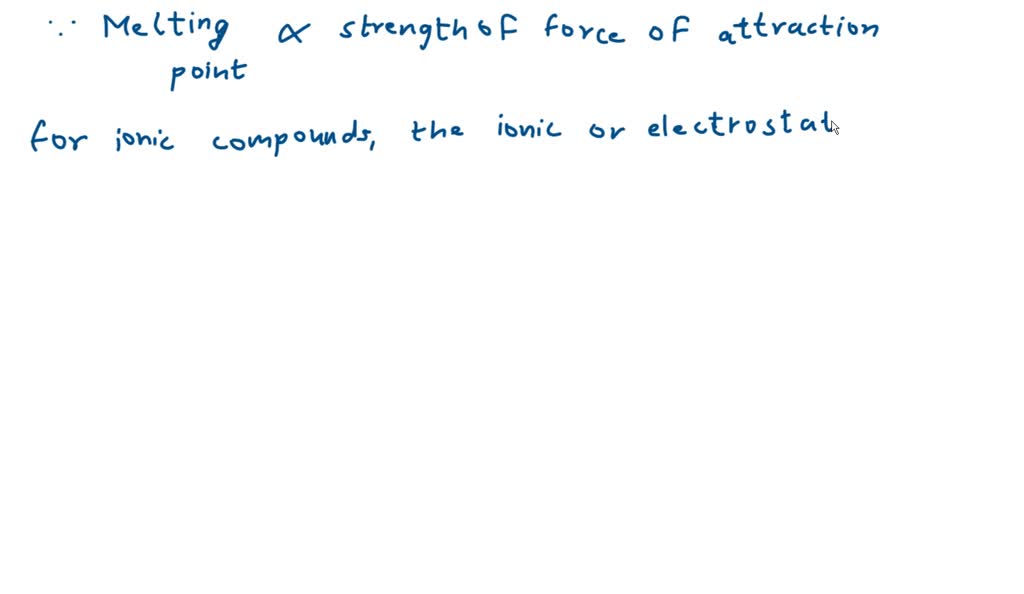 ∵ Melting ∝ strength of force of attraction
point
for ionic compounds, the ionic or electrostat